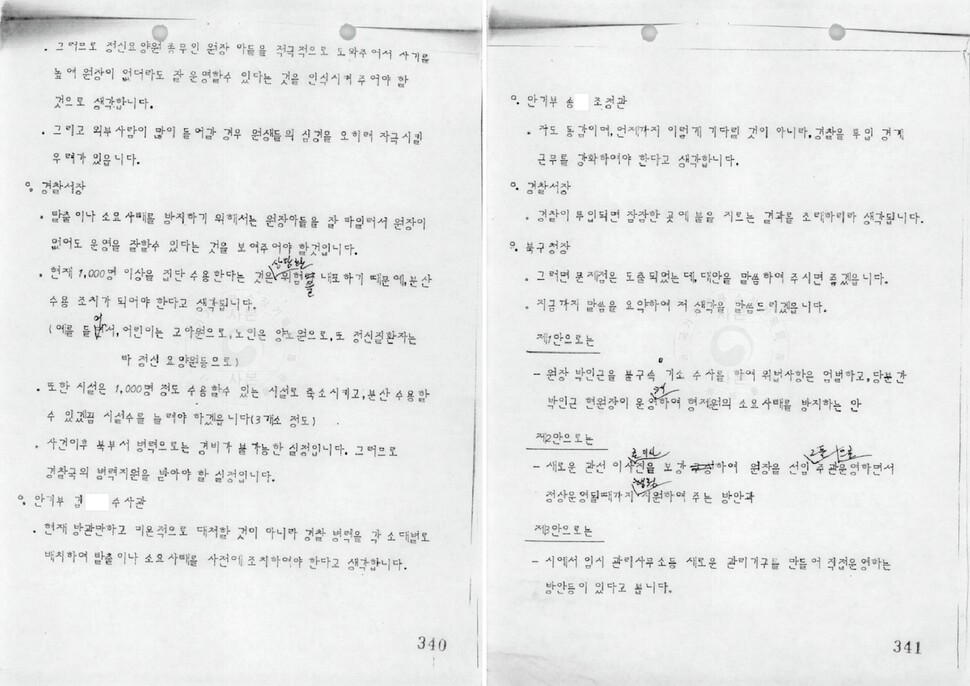 . 그러므로 정신요양원 총무인 원장 아들을 적극적으로 도와주어서 사기를
높여 원장이 없더라도 잘 운영할수 있다는 것을 인식시켜 주어야 할
것으로 생각합니다.
. 그리고 외부사람이 많이 들어갈 경우 원생들의 심경을 오히려 자극시킬
우려가 있읍니다.
o. 경찰서장
. 탈출이나 소요사태를 방지하기 위해서는 원장아들을 잘 타일러서 원장이
없어도 운영을 잘할수 있다는 것을 보여주어야 할것입니다.
상당한
. 현재 1,000명 이상을 집단 수용한다는 것은 위험을 내포하기 때문에, 분산
수용 조치가 되어야 한다고 생각됩니다.
(예를 들어서, 어린이는 고아원으로, 노인은 양노원으로, 또 정신질환자는
타 정신 요양원등으로)
. 또한 시설은 1,000명 정도 수용할수 있는 시설로 축소시키고, 분산 수용할
수 있겠끔 시설수를 늘려야 하겠읍니다(3개소 정도)
. 사건이후 북부서 병력으로는 경비가 불가능한 실정입니다. 그러므로
경찰국의 병력지원을 받아야 할 실정입니다.
o. 안기부 김 수사관
. 현재 방관만하고 미온적으로 대처할 것이 아니라 경찰 병력을 각 소대별로
배치하여 탈출이나 소요사태를 사전에 조치하여야 한다고 생각합니다.
340
o. 안기부 송 조정관
. 저도 동감이며, 언제까지 이렇게 기다릴 것이 아니라, 경찰을 투입 경계
근무를 강화하여야 한다고 생각합니다.
o. 경찰서장
. 경찰이 투입되면 잠잠한 곳에 불을 지르는 결과를 초래하리라 생각됩니다.
o. 북구청장
. 그러면 문제점은 도출되었는데, 대안을 말씀하여 주시면 좋겠읍니다.
. 지금까지 말씀을 요약하여 저 생각을 말씀드리겠읍니다.
제1안으로는
- 원장 박인근을 불구속 기소 수사를 하여 위법사항은 엄벌하고, 당분간
박인근 현원장이 운영하여 형제원의 소요사태를 방지하는 안
제2안으로는
- 새로운 관선 이사진을 보강하여 원장을 선임 주관운영하면서
정상운영될때까지 지원하여 주는 방안과
제3안으로는
- 시에서 임시 관리사무소등 새로운 관리기구를 만들어 직접운영하는
방안등이 있다고 봅니다.
341